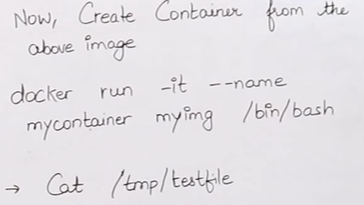 Now, Create Container from the
above image
docker run -it --name
mycontainer myimg /bin/bash
→ Cat /tmp/testfile